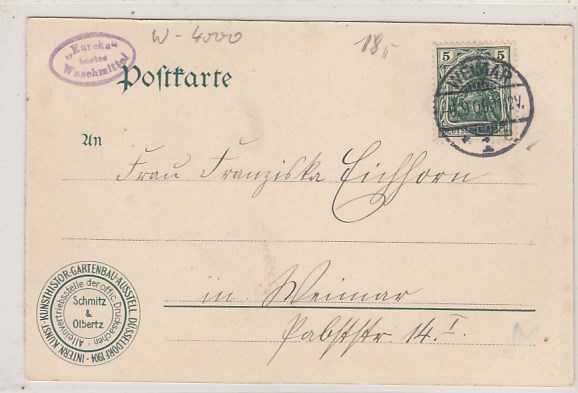 W - 4000
18,-
„Eureka“
bestes
Waschmittel
Postkarte
5 5
WEIMAR
1
An
Frau Franziska Eichhorn
in Weimar
Pabststr. 14. I.
INTERN. KUNST- KUNSTHISTOR- GARTENBAU-AUSSTELL. DÜSSELDORF 1904
Alleinvertriebsstelle der offic. Drucksachen
Schmitz
&
Olbertz